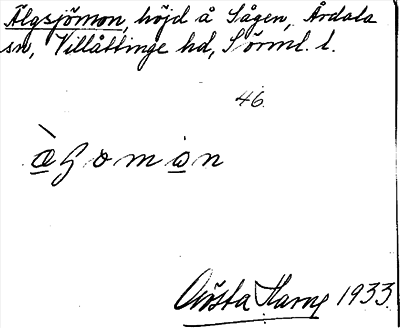 Älgsjömon, höjd å Sågen, Årdala
sn, Villåttinge hd, Sörml. l.
46.
Gösta Harne 1933.